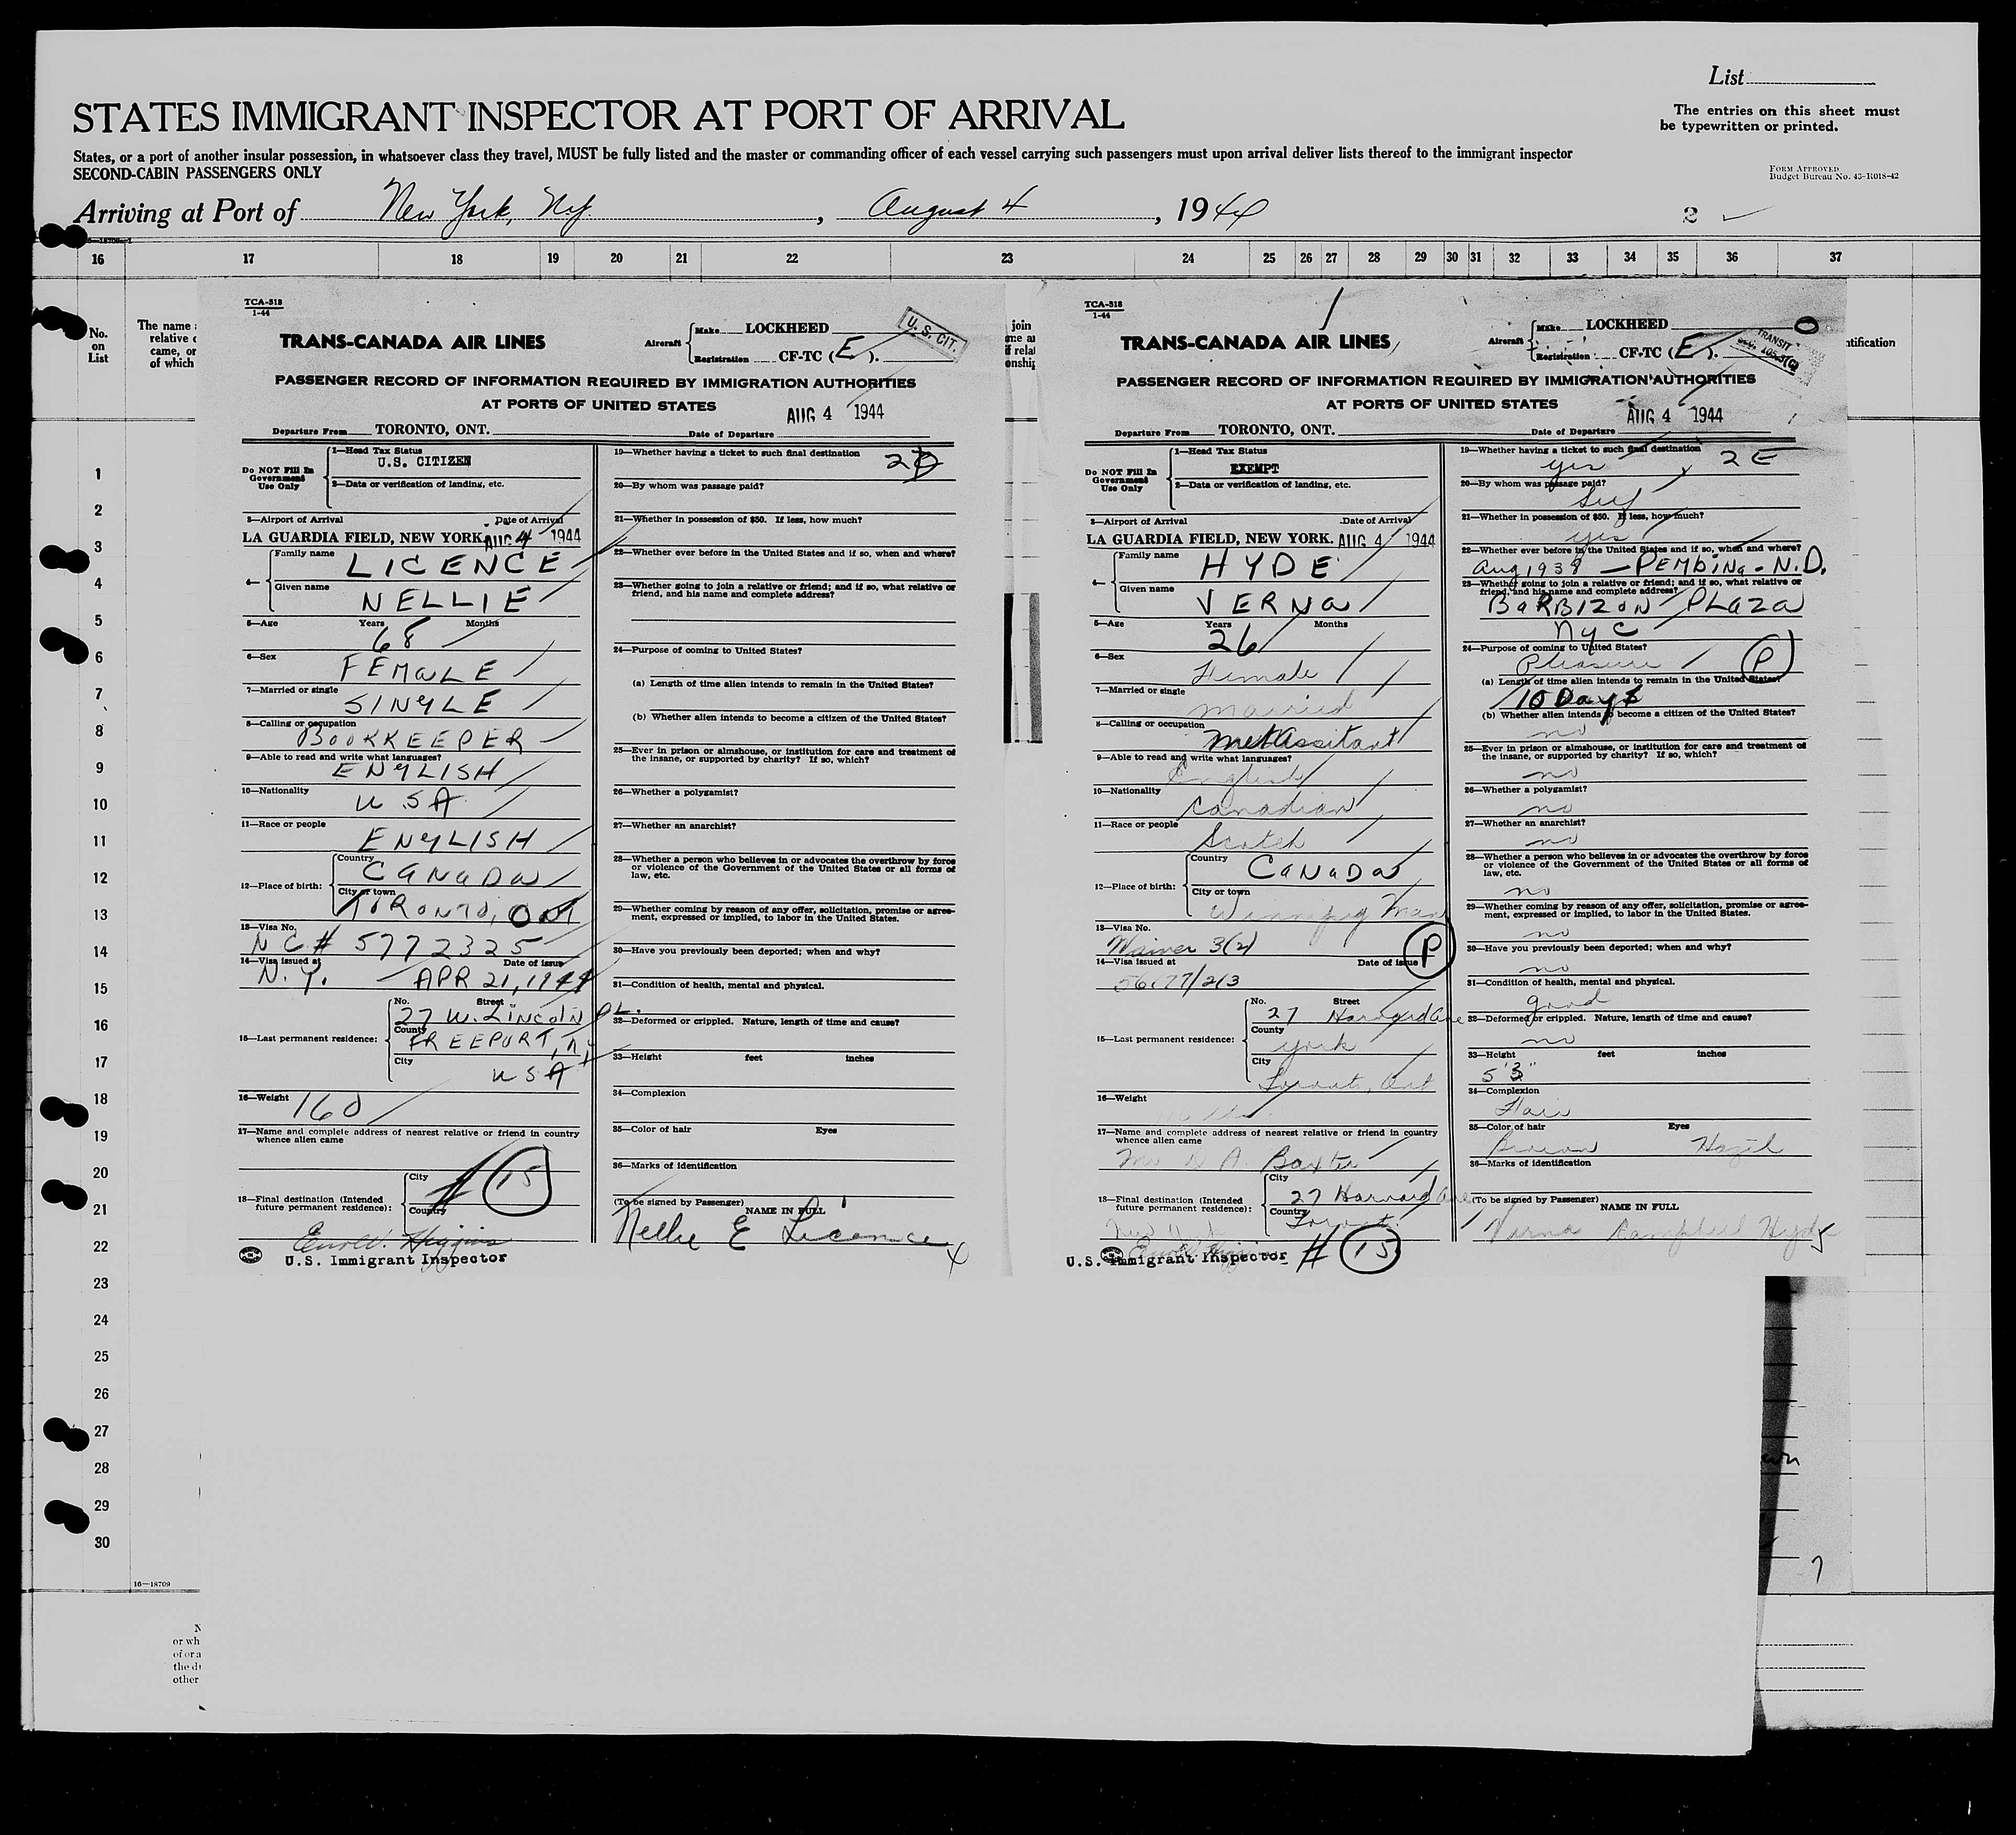 List
STATES IMMIGRANT INSPECTOR AT PORT OF ARRIVAL
The entries on this sheet must
be typewritten or printed.
States, or a port of another insular possession, in whatsoever class they travel, MUST be fully listed and the master or commanding officer of each vessel carrying such passengers must upon arrival deliver lists thereof to the immigrant inspector
SECOND-CABIN PASSENGERS ONLY
FORM APPROVED
Budget Bureau No. 43-R018-42
Arriving at Port of New York, N.Y. , August 4 , 1944
2
16 17 18 19 20 21 22 23 24 25 26 27 28 29 30 31 32 33 34 35 36 37
No.
on
List
The name
relative
came, or
of which
1
2
3
4
5
6
7
8
9
10
11
12
13
14
15
16
17
18
19
20
21
22
23
24
25
26
27
28
29
30
16—18709
or wh
of or a
the di
other
TCA-518
1-44
TRANS-CANADA AIR LINES
Aircraft Make LOCKHEED
Registration CF-TC (E).
U. S. CIT.
PASSENGER RECORD OF INFORMATION REQUIRED BY IMMIGRATION AUTHORITIES
AT PORTS OF UNITED STATES
AUG 4 1944
Departure From TORONTO, ONT. Date of Departure
Do NOT Fill In
Government
Use Only
1—Head Tax Status
U.S. CITIZEN
2—Data or verification of landing, etc.
3—Airport of Arrival Date of Arrival
LA GUARDIA FIELD, NEW YORK. AUG 4 1944
4— Family name
LICENCE
Given name
NELLIE
5—Age Years Months
68
6—Sex
FEMALE
7—Married or single
SINGLE
8—Calling or occupation
BOOKKEEPER
9—Able to read and write what languages?
ENGLISH
10—Nationality
U.S.A.
11—Race or people
ENGLISH
12—Place of birth: Country
CANADA
City or town
TORONTO, ONT
13—Visa No.
NC# 5772325
14—Visa issued at Date of issue
N.Y. – APR 21, 1944
15—Last permanent residence: No. Street
27 W. LINCOLN PL.
County
FREEPORT, N.Y.
City
USA
16—Weight
160
17—Name and complete address of nearest relative or friend in country
whence alien came
18—Final destination (Intended
future permanent residence): City
Country
# 15
U.S. Immigrant Inspector
19—Whether having a ticket to such final destination
20—By whom was passage paid?
21—Whether in possession of $50. If less, how much?
22—Whether ever before in the United States and if so, when and where?
23—Whether going to join a relative or friend; and if so, what relative or
friend, and his name and complete address?
24—Purpose of coming to United States?
(a) Length of time alien intends to remain in the United States?
(b) Whether alien intends to become a citizen of the United States?
25—Ever in prison or almshouse, or institution for care and treatment of
the insane, or supported by charity? If so, which?
26—Whether a polygamist?
27—Whether an anarchist?
28—Whether a person who believes in or advocates the overthrow by force
or violence of the Government of the United States or all forms of
law, etc.
29—Whether coming by reason of any offer, solicitation, promise or agree-
ment, expressed or implied, to labor in the United States.
30—Have you previously been deported; when and why?
31—Condition of health, mental and physical.
32—Deformed or crippled. Nature, length of time and cause?
33—Height feet inches
34—Complexion
35—Color of hair Eyes
36—Marks of identification
(To be signed by Passenger)
NAME IN FULL
Nellie E Licence
TCA-518
1-44
TRANS-CANADA AIR LINES
Aircraft Make LOCKHEED
Registration CF-TC (E).
TRANSIT
PASSENGER RECORD OF INFORMATION REQUIRED BY IMMIGRATION AUTHORITIES
AT PORTS OF UNITED STATES
AUG 4 1944
Departure From TORONTO, ONT. Date of Departure
Do NOT Fill In
Government
Use Only
1—Head Tax Status
EXEMPT
2—Data or verification of landing, etc.
3—Airport of Arrival Date of Arrival
LA GUARDIA FIELD, NEW YORK. AUG 4 1944
4— Family name
HYDE
Given name
VERNA
5—Age Years Months
26
6—Sex
Female
7—Married or single
Married
8—Calling or occupation
Met Assitant
9—Able to read and write what languages?
English
10—Nationality
Canadian
11—Race or people
Scotch
12—Place of birth: Country
CANADA
City or town
Winnipeg Man
13—Visa No.
Waiver 3(2) P
14—Visa issued at Date of issue
15—Last permanent residence: No. Street
27 Harvard Ave
County
York
City
Toronto, Ont
16—Weight
17—Name and complete address of nearest relative or friend in country
whence alien came
Baxter
18—Final destination (Intended
future permanent residence): City
27 Harvard Ave
Country
Toronto
U.S. Immigrant Inspector # 15
19—Whether having a ticket to such final destination
yes 2E
20—By whom was passage paid?
Self
21—Whether in possession of $50. If less, how much?
yes
22—Whether ever before in the United States and if so, when and where?
Aug 1938 – PEMBINA - N.D.
23—Whether going to join a relative or friend; and if so, what relative or
friend, and his name and complete address?
BARBIZON PLAZA
NYC
24—Purpose of coming to United States?
Pleasure P
(a) Length of time alien intends to remain in the United States?
10 Days
(b) Whether alien intends to become a citizen of the United States?
no
25—Ever in prison or almshouse, or institution for care and treatment of
the insane, or supported by charity? If so, which?
no
26—Whether a polygamist?
no
27—Whether an anarchist?
no
28—Whether a person who believes in or advocates the overthrow by force
or violence of the Government of the United States or all forms of
law, etc.
no
29—Whether coming by reason of any offer, solicitation, promise or agree-
ment, expressed or implied, to labor in the United States.
no
30—Have you previously been deported; when and why?
no
31—Condition of health, mental and physical.
good
32—Deformed or crippled. Nature, length of time and cause?
no
33—Height feet inches
5'3"
34—Complexion
Fair
35—Color of hair Eyes
Brown Hazel
36—Marks of identification
(To be signed by Passenger)
NAME IN FULL
Verna Campbell Hyde